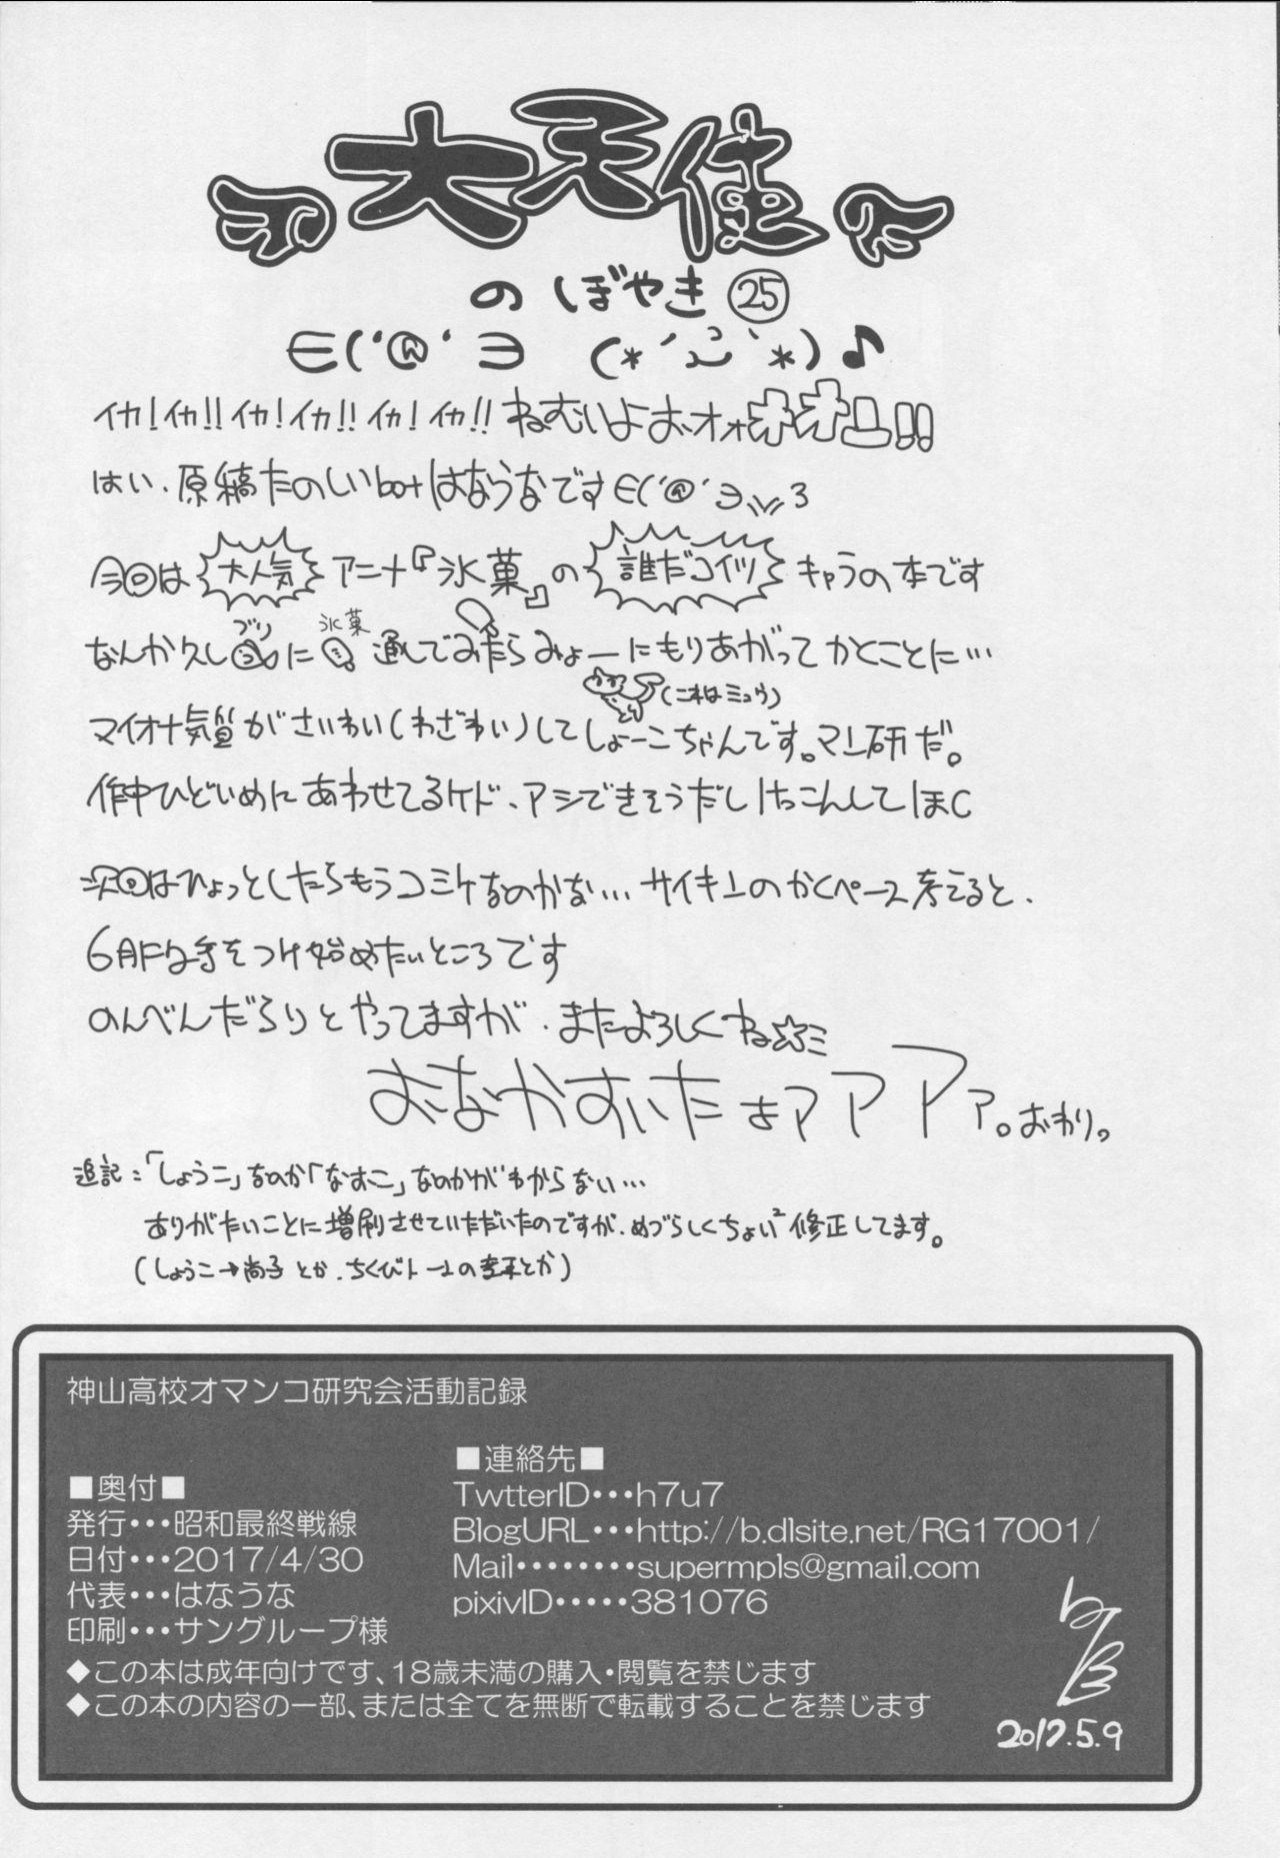 大天使
のぼやき㉕
∈('@'∋ (*´ `*)♪
イカ!イカ!!イカ!イカ!!イカ!イカ!!ねむいよぉーオォオオ!!
はい、原稿たのしいbotはなうなです∈('@'∋ 3
今回は大人気アニメ『氷菓』の誰だコイツキャラの本です
なんか久しブリに氷菓通してみたらみょーにもりあがってかくことに…
(これはミュウ)
マイナー気質がさいわい(わざわい)してしょーこちゃんです。マン研だ。
作中ひどいめにあわせてるケド、アシできそうだしけっこんしてほC
次回はひょっとしたらもうコミケなのかな… サイキンのかくペース考えると、
6月F 手をつけ始めたいところです
のんべんだらりとやってますが、またよろしくね☆ミ
おなかすいたよァアアァ。おわり。
追記:「しょうこ」なのか「なおこ」なのかがわからない…
ありがたいことに増刷させていただいたのですが、めづらしくちょい²修正してます。
(しょうこ→尚子とか、ちくびトーンの とか)
神山高校オマンコ研究会活動記録
■奥付■
発行・・・昭和最終戦線
日付・・・2017/4/30
代表・・・はなうな
印刷・・・サングループ様
■連絡先■
TwtterID・・・h7u7
BlogURL・・・http://b.dlsite.net/RG17001/
Mail・・・・・・・・supermpls@gmail.com
pixivID・・・・・381076
◆この本は成年向けです、18歳未満の購入・閲覧を禁じます
◆この本の内容の一部、または全てを無断で転載することを禁じます
2017.5.9